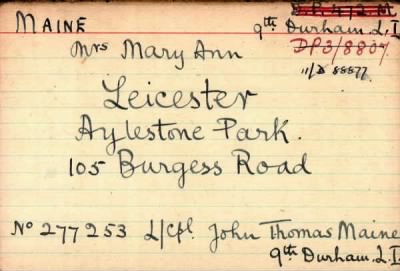 MAINE
D.P. 4/2. M.
9th Durham L.I
Mrs Mary Ann
DP3/8807
11/D 88877
Leicester
Aylestone Park.
105 Burgess Road
No 277253 L/Cpl. John Thomas Maine
9th Durham. L. I.